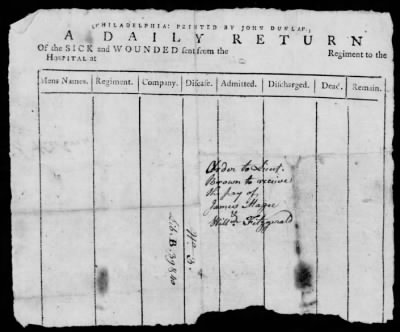 (PHILADELPHIA: PRINTED BY JOHN DUNLAP.)
A DAILY RETURN
Of the SICK and WOUNDED sent from the Regiment to the
HOSPITAL at
Mens Names. Regiment. Company. Disease. Admitted. Discharged. Dead. Remain.
Order to Lieut.
Brown to receive
the pay of
James
Willm Fitzgerald
No. 3.
39840